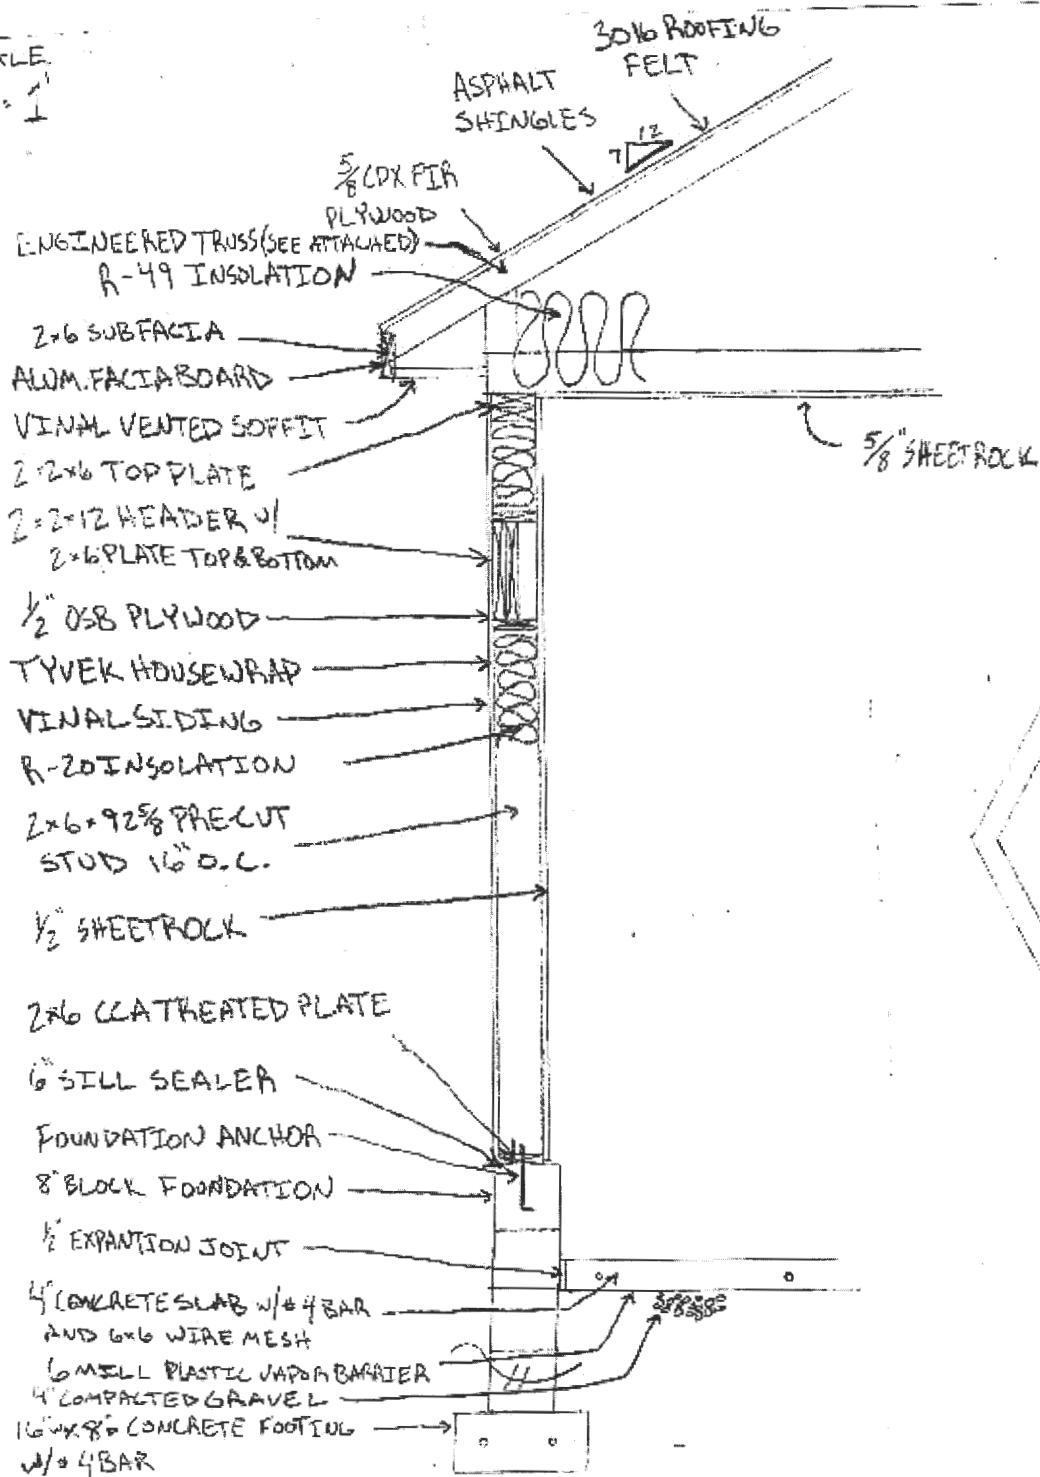 = 1'
30lb ROOFING
FELT
ASPHALT
SHINGLES
12
7
5/8 CDX FIR
PLYWOOD
ENGINEERED TRUSS (SEE ATTACHED)
R-49 INSOLATION
2x6 SUBFACIA
ALUM. FACIABOARD
VINAL VENTED SOFFIT
2-2x6 TOP PLATE
5/8" SHEETROCK
2-2x12 HEADER w/
2x6 PLATE TOP & BOTTOM
1/2" OSB PLYWOOD
TYVEK HOUSEWRAP
VINAL SIDING
R-20 INSOLATION
2x6x92 5/8 PRE-CUT
STUD 16" O.C.
1/2" SHEETROCK
2x6 CCA TREATED PLATE
6" SILL SEALER
FOUNDATION ANCHOR
8" BLOCK FOUNDATION
1/2" EXPANTION JOINT
4" CONCRETE SLAB w/ #4 BAR
AND 6x6 WIRE MESH
6 MILL PLASTIC VAPOR BARRIER
4" COMPACTED GRAVEL
CONCRETE FOOTING
w/ #4 BAR